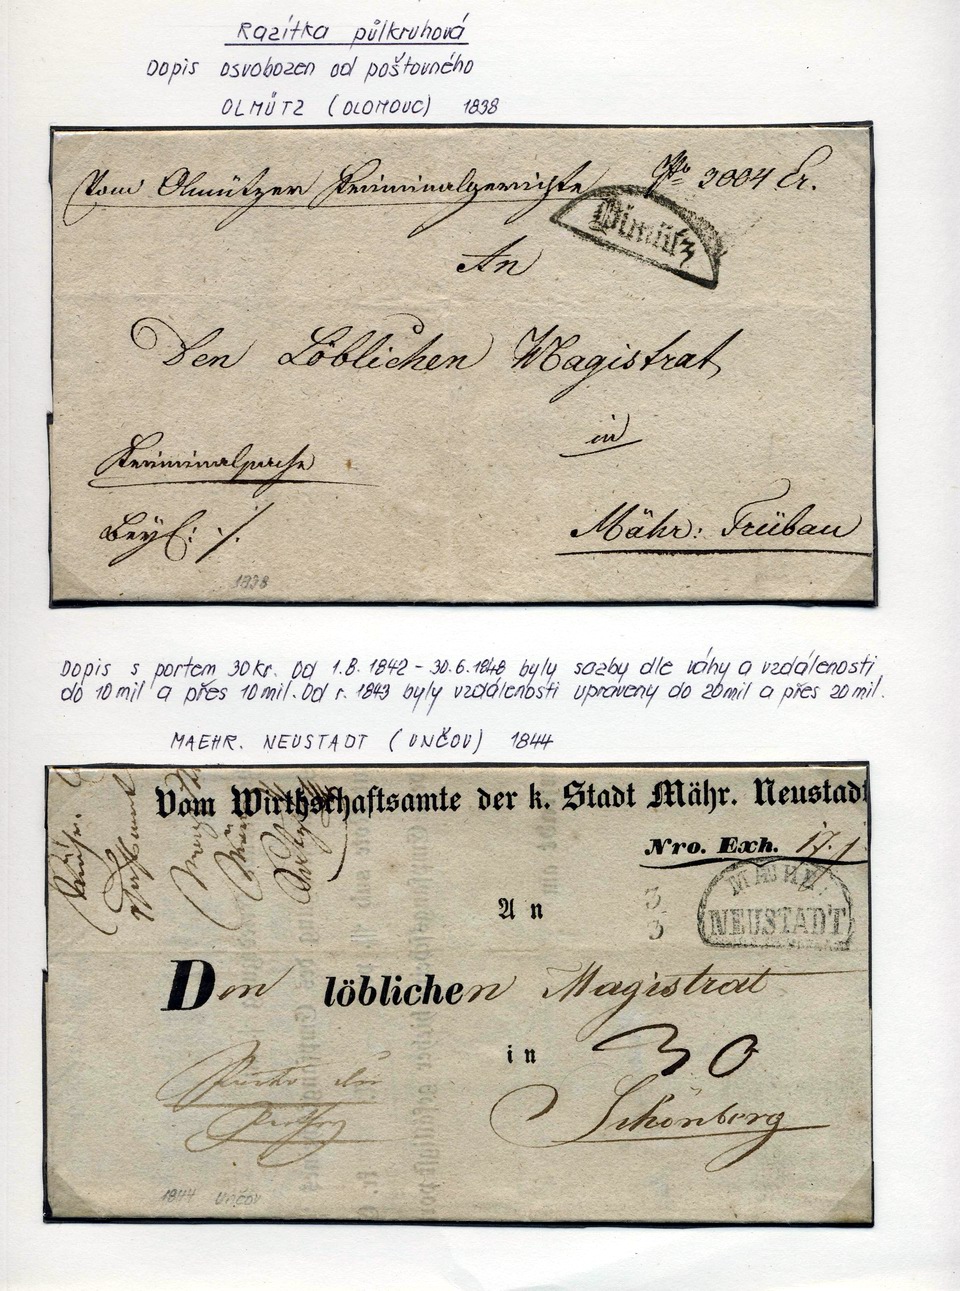 Razítka půlkruhová
Dopis osvobozen od poštovného
OLMÜTZ (OLOMOUC) 1838
Vom Olmützer Kriminalgerichte
Nro 2004 Cr.
Olmütz
An
Den Löblichen Magistrat
in
Kriminalsache
Mähr: Trübau
1838
Dopis s portem 30kr. Od 1.8.1842 - 30.6.1848 byly sazby dle váhy a vzdálenosti
do 10 mil a přes 10 mil. Od r. 1843 byly vzdálenosti upraveny do 20 mil a přes 20 mil.
MAEHR. NEUSTADT (UNČOV) 1844
Vom Wirthschaftsamte der k. Stadt Mähr. Neustadt
Nro. Exh.
MAEHR:
NEUSTADT
An
3
3
Den löblichen Magistrat
in 30
Schönberg
1844 UNČOV